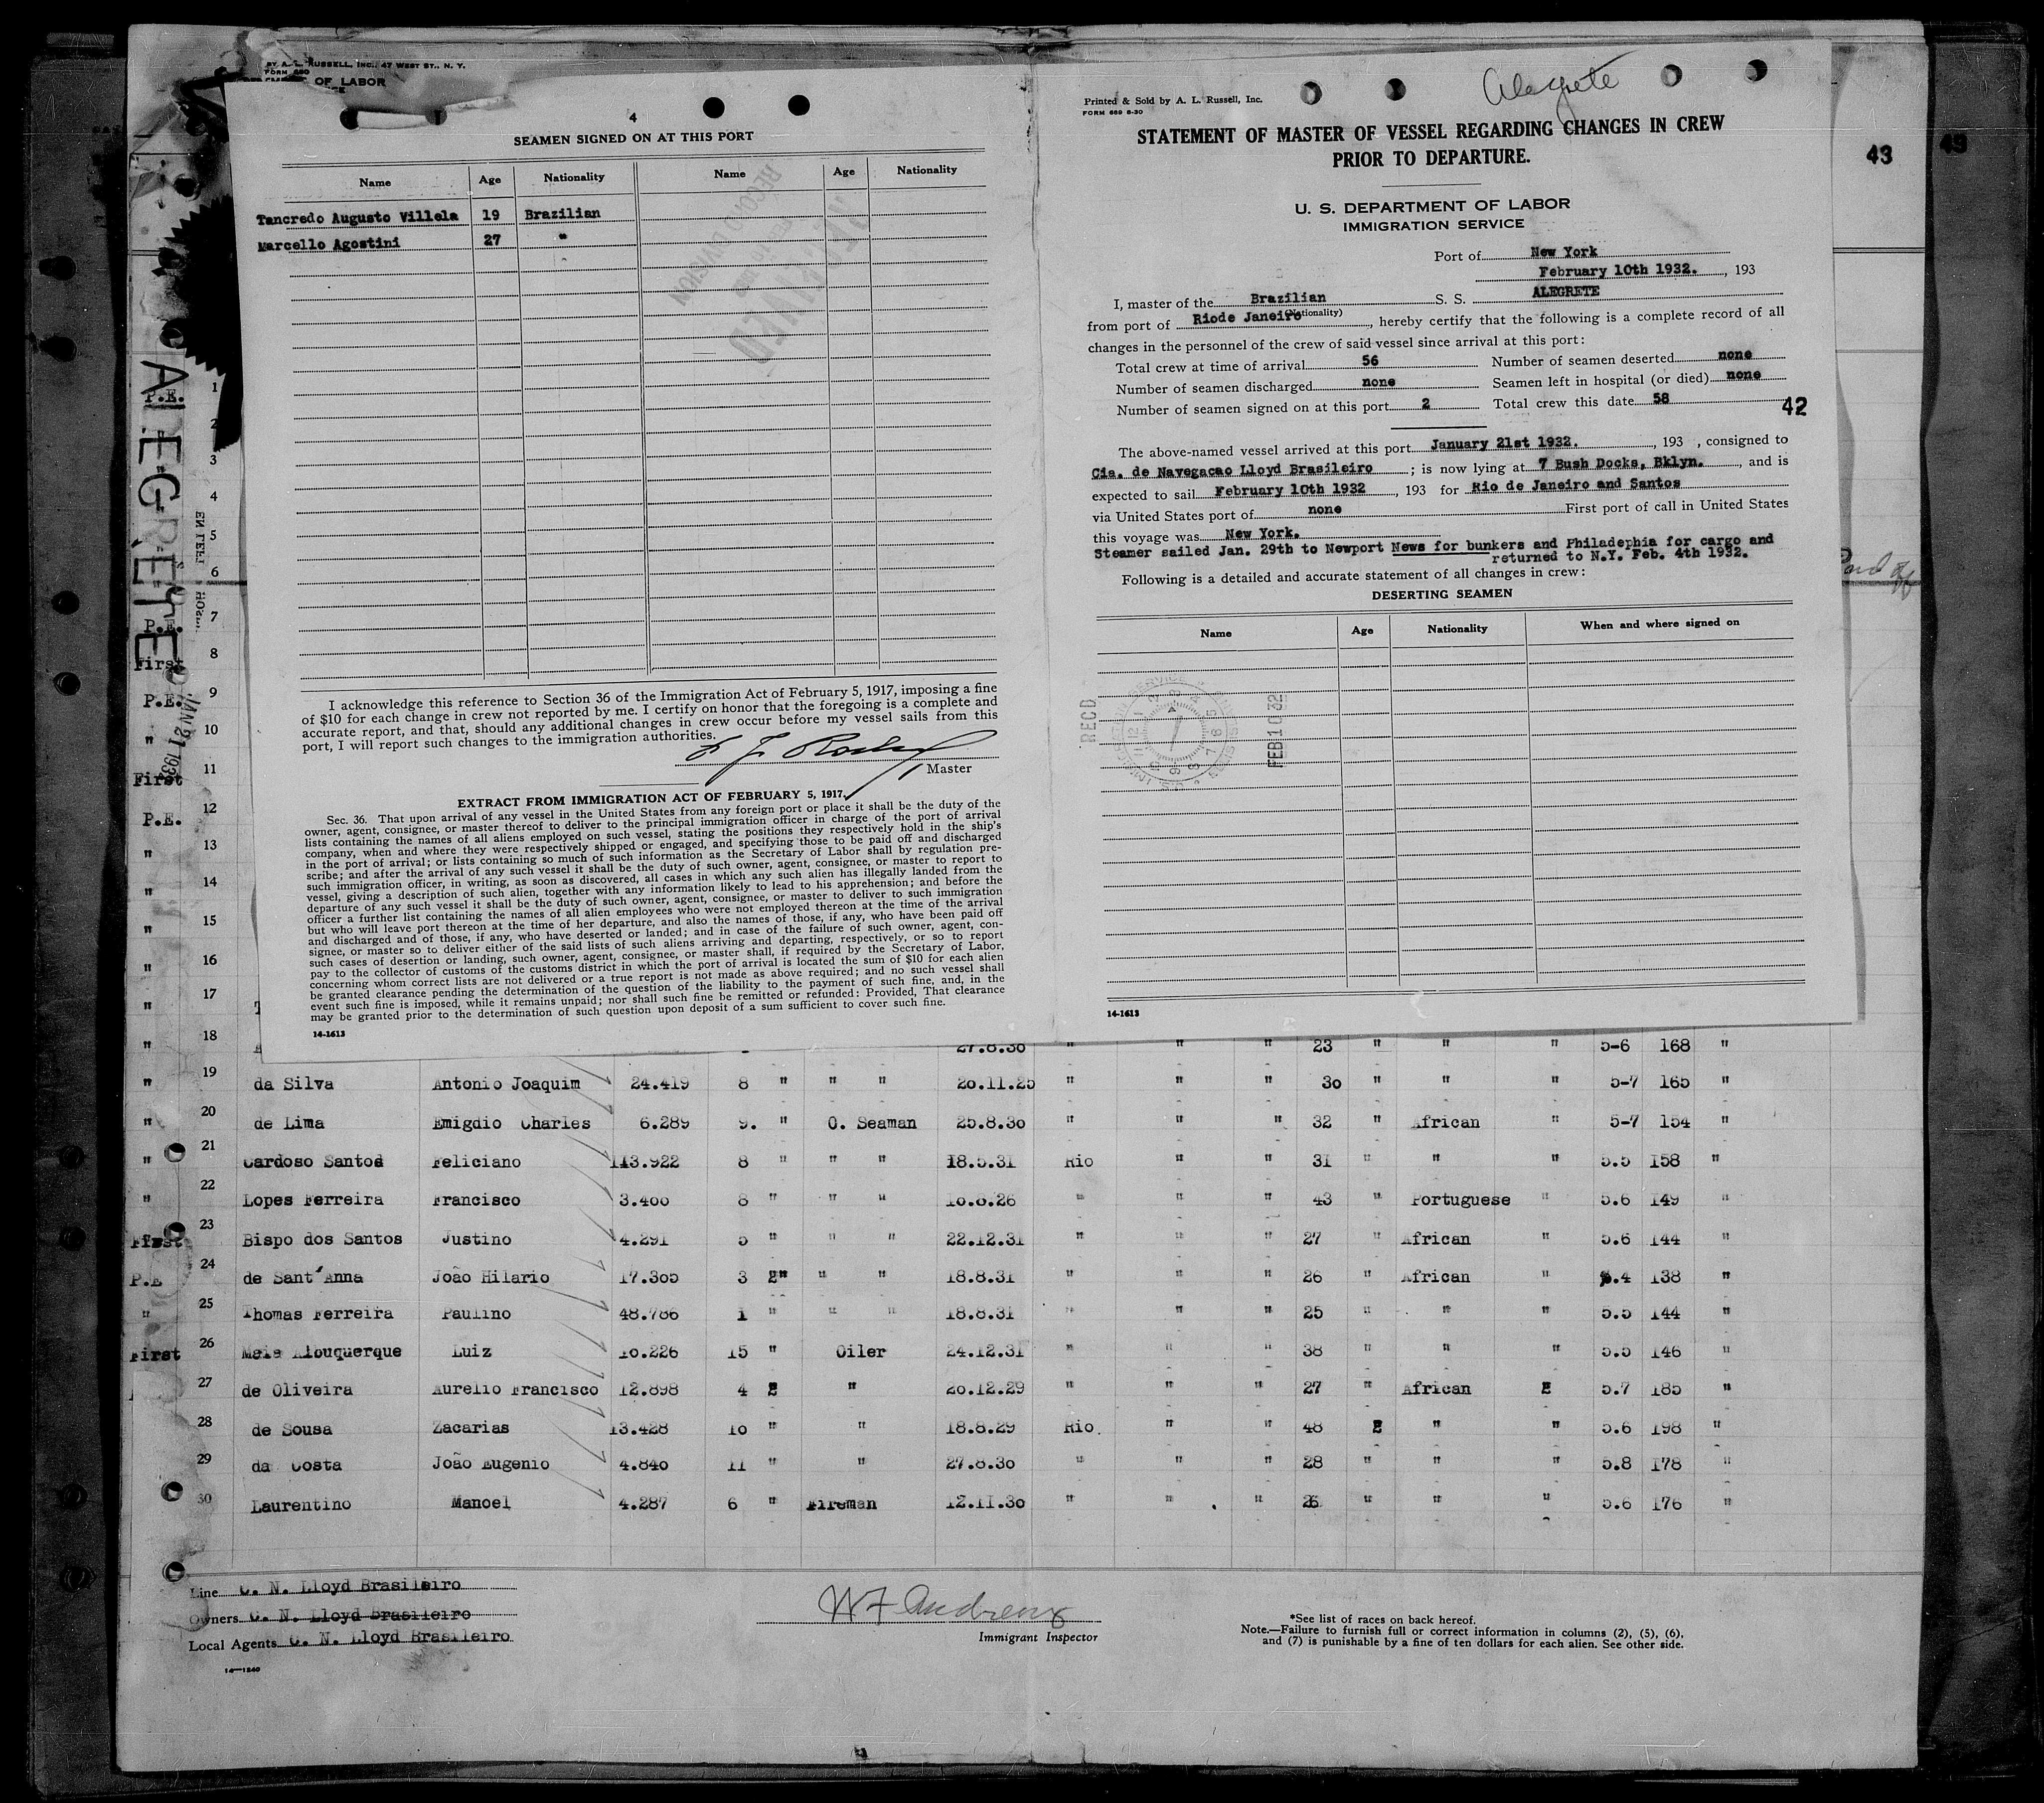 BY A. L. RUSSELL, INC., 47 WEST ST., N. Y.
OF LABOR
4
SEAMEN SIGNED ON AT THIS PORT
Name Age Nationality Name Age Nationality
Tancredo Augusto Villela 19 Brazilian
Marcello Agostini 27 "
I acknowledge this reference to Section 36 of the Immigration Act of February 5, 1917, imposing a fine
of $10 for each change in crew not reported by me. I certify on honor that the foregoing is a complete and
accurate report, and that, should any additional changes in crew occur before my vessel sails from this
port, I will report such changes to the immigration authorities.
Master
EXTRACT FROM IMMIGRATION ACT OF FEBRUARY 5, 1917.
Sec. 36. That upon arrival of any vessel in the United States from any foreign port or place it shall be the duty of the
owner, agent, consignee, or master thereof to deliver to the principal immigration officer in charge of the port of arrival
lists containing the names of all aliens employed on such vessel, stating the positions they respectively hold in the ship's
company, when and where they were respectively shipped or engaged, and specifying those to be paid off and discharged
in the port of arrival; or lists containing so much of such information as the Secretary of Labor shall by regulation pre-
scribe; and after the arrival of any such vessel it shall be the duty of such owner, agent, consignee, or master to report to
such immigration officer, in writing, as soon as discovered, all cases in which any such alien has illegally landed from the
vessel, giving a description of such alien, together with any information likely to lead to his apprehension; and before the
departure of any such vessel it shall be the duty of such owner, agent, consignee, or master to deliver to such immigration
officer a further list containing the names of all alien employees who were not employed thereon at the time of the arrival
but who will leave port thereon at the time of her departure, and also the names of those, if any, who have been paid off
and discharged and of those, if any, who have deserted or landed; and in case of the failure of such owner, agent, con-
signee, or master so to deliver either of the said lists of such aliens arriving and departing, respectively, or so to report
such cases of desertion or landing, such owner, agent, consignee, or master shall, if required by the Secretary of Labor,
pay to the collector of customs of the customs district in which the port of arrival is located the sum of $10 for each alien
concerning whom correct lists are not delivered or a true report is not made as above required; and no such vessel shall
be granted clearance pending the determination of the question of the liability to the payment of such fine, and, in the
event such fine is imposed, while it remains unpaid; nor shall such fine be remitted or refunded: Provided, That clearance
may be granted prior to the determination of such question upon deposit of a sum sufficient to cover such fine.
14-1613
Alegrete
Printed & Sold by A. L. Russell, Inc.
FORM 689 8-30
STATEMENT OF MASTER OF VESSEL REGARDING CHANGES IN CREW
PRIOR TO DEPARTURE.
U. S. DEPARTMENT OF LABOR
IMMIGRATION SERVICE
Port of New York
February 10th 1932. , 193
I, master of the Brazilian S. S. ALEGRETE
(Nationality)
from port of Riode Janeiro , hereby certify that the following is a complete record of all
changes in the personnel of the crew of said vessel since arrival at this port:
Total crew at time of arrival 56 Number of seamen deserted none
Number of seamen discharged none Seamen left in hospital (or died) none
Number of seamen signed on at this port 2 Total crew this date 58
42
43
43
The above-named vessel arrived at this port January 21st 1932. , 193 , consigned to
Cia. de Navegacao Lloyd Brasileiro ; is now lying at 7 Bush Docks, Bklyn. , and is
expected to sail February 10th 1932 , 193 for Rio de Janeiro and Santos
via United States port of none First port of call in United States
this voyage was New York.
Steamer sailed Jan. 29th to Newport News for bunkers and Philadephia for cargo and
returned to N.Y. Feb. 4th 1932.
Following is a detailed and accurate statement of all changes in crew:
DESERTING SEAMEN
Name Age Nationality When and where signed on
RECD
FEB 10 32
14-1613
ALEGRETE
JAN 21 1932
P.E. 1
2
" 3
" 4
" 5
" 6
P.E. 7
First 8
P.E. 9
" 10
First 11
P.E. 12
" 13
" 14
" 15
" 16
" 17
" 18 27.8.30 " " " 23 " " " 5-6 168 "
" 19 da Silva Antonio Joaquim 24.419 8 " " " 20.11.25 " " " 30 " " " 5-7 165 "
" 20 de Lima Emigdio Charles 6.289 9. " O. Seaman 25.8.30 " " " 32 " African " 5-7 154 "
" 21 Cardoso Santos Feliciano 113.922 8 " " " 18.5.31 Rio " " 31 " " " 5.5 158 "
" 22 Lopes Ferreira Francisco 3.400 8 " " " 10.8.26 " " " 43 " Portuguese " 5.6 149 "
First 23 Bispo dos Santos Justino 4.291 5 " " " 22.12.31 " " " 27 " African " 5.6 144 "
P.E 24 de Sant'Anna João Hilario 17.305 3 " " " 18.8.31 " " " 26 " African " 5.4 138 "
" 25 Thomas Ferreira Paulino 48.786 1 " " " 18.8.31 " " " 25 " " " 5.5 144 "
First 26 Maia Albuquerque Luiz 10.226 15 " Oiler 24.12.31 " " " 38 " " " 5.5 146 "
27 de Oliveira Aurelio Francisco 12.898 4 " " 20.12.29 " " " 27 " African " 5.7 185 "
28 de Sousa Zacarias 13.428 10 " " 18.8.29 Rio. " " 48 " " " 5.6 198 "
29 da Costa João Eugenio 4.840 11 " " 27.8.30 " " " 28 " " " 5.8 178 "
30 Laurentino Manoel 4.287 6 " Fireman 12.11.30 " " " 26 " " " 5.6 176 "
Line C. N. Lloyd Brasileiro
Owners C. N. Lloyd Brasileiro
Local Agents C. N. Lloyd Brasileiro
14—1240
W F Andrews
Immigrant Inspector
*See list of races on back hereof.
Note.—Failure to furnish full or correct information in columns (2), (5), (6),
and (7) is punishable by a fine of ten dollars for each alien. See other side.